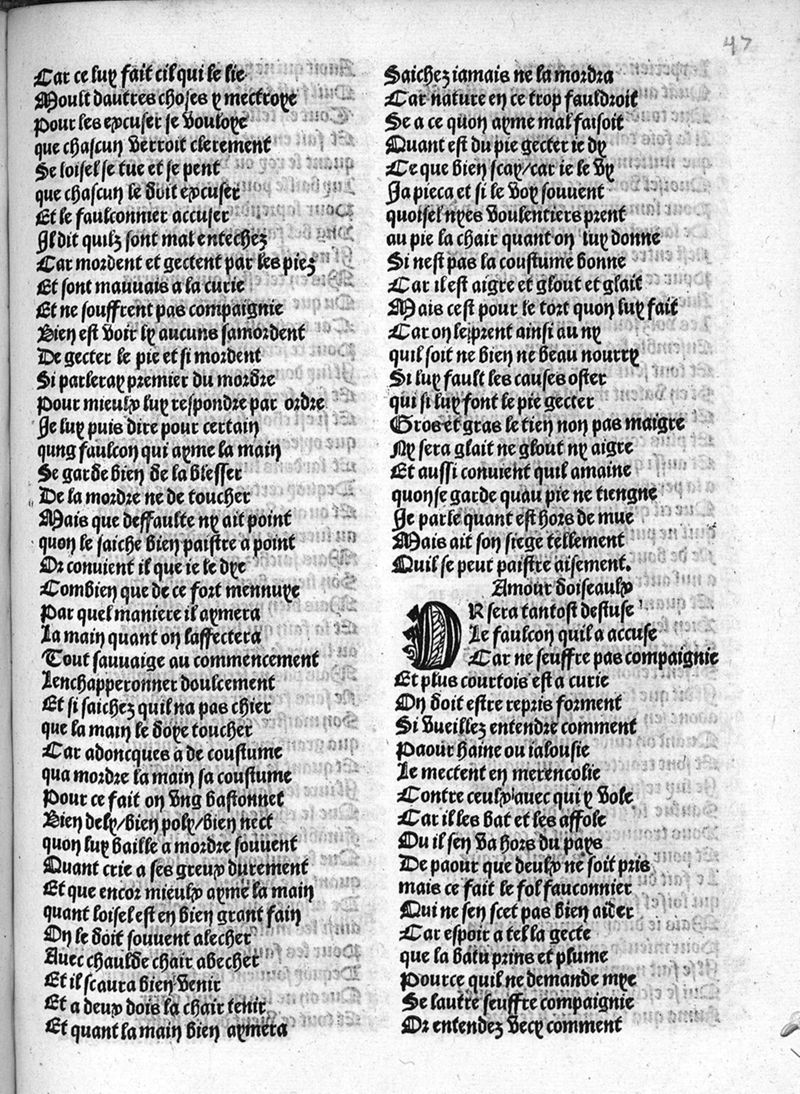 47
Car ce luy fait cil qui le lie
Moult dautres choses y mectroye
Pour les excuser se vouloye
que chascun verroit clerement
Se loisel se tue et se pent
que chascun le doit excuser
Et le faulconnier accuser
Il dit quilz sont mal entechez
Car mordent et gectent par les piez
Et sont mauuais a la curie
Et ne souffrent pas compaignie
Bien est voir ly aucuns samordent
De gecter le pie et si mordent
Si parleray premier du mordre
Pour mieulx luy respondre par ordre
Je luy puis dire pour certain
qung faulcon qui ayme la main
Se garde bien de la blesser
De la mordre ne de toucher
Mais que deffaulte ny ait point
quon le saiche bien paistre a point
Or conuient il que ie le dye
Combien que de ce fort mennuye
Par quel maniere il aymera
La main quant on laffectera
Tout sauuaige au commencement
Lenchapperonner doulcement
Et si saichez quil na pas chier
que la main le doye toucher
Car adoncques a de coustume
qua mordre la main sa coustume
Pour ce fait on vng bastonnet
Bien dely/bien poly/bien nect
quon luy baille a mordre souuent
Quant crie a ses greux durement
Et que encor mieulx ayme la main
quant loisel est en bien grant fain
On le doit souuent alecher
Auec chaulde chair abecher
Et il scaura bien venir
Et a deux dois la chair tenir
Et quant la main bien aymera
Saichez iamais ne la mordra
Car nature en ce trop fauldroit
Se a ce quon ayme mal faisoit
Quant est du pie gecter ie dy
Ce que bien scay/car ie le vy
Ja pieca et si le voy souuent
quoisel nyes voulentiers prent
au pie la chair quant on luy donne
Si nest pas la coustume bonne
Car il est aigre et glout et glait
Mais cest pour le tort quon luy fait
Car on le prent ainsi au ny
quil soit ne bien ne beau nourry
Si luy fault les causes oster
qui si luy font le pie gecter
Gros et gras le tien non pas maigre
Ny sera glait ne glout ny aigre
Et aussi conuient quil amaine
quon se garde quau pie ne tiengne
Je parle quant est hors de mue
Mais ait son siege tellement
Quil se peut paistre aisement.
Amour doiseaulx
OR sera tantost destuse
Le faulcon quil a accuse
Car ne seuffre pas compaignie
Et plus courtois est a curie
On doit estre repris forment
Si vueillez entendre comment
Paour haine ou ialousie
Le mectent en merencolie
Contre ceulx auec qui y vole
Car il les bat et les affole
Ou il sen va hors du pays
De paour que deulx ne soit pris
mais ce fait le fol fauconnier
Qui ne sen scet pas bien aider
Car espoir a tel la gecte
que la batu prins et plume
Pource quil ne demande mye
Se lautre seuffre compaignie
Or entendez vecy comment